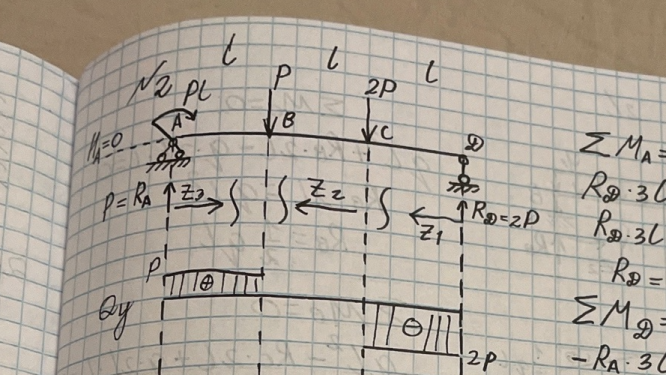 N2
l l l
Pl P 2P
A B C D
H_A=0
P=R_A Z3 Z2 Z1 R_D=2P
P
Qy ⊕ ⊖
2P
ΣM_A=
R_D·3l
R_D·3l
R_D=
ΣM_D=
-R_A·3l